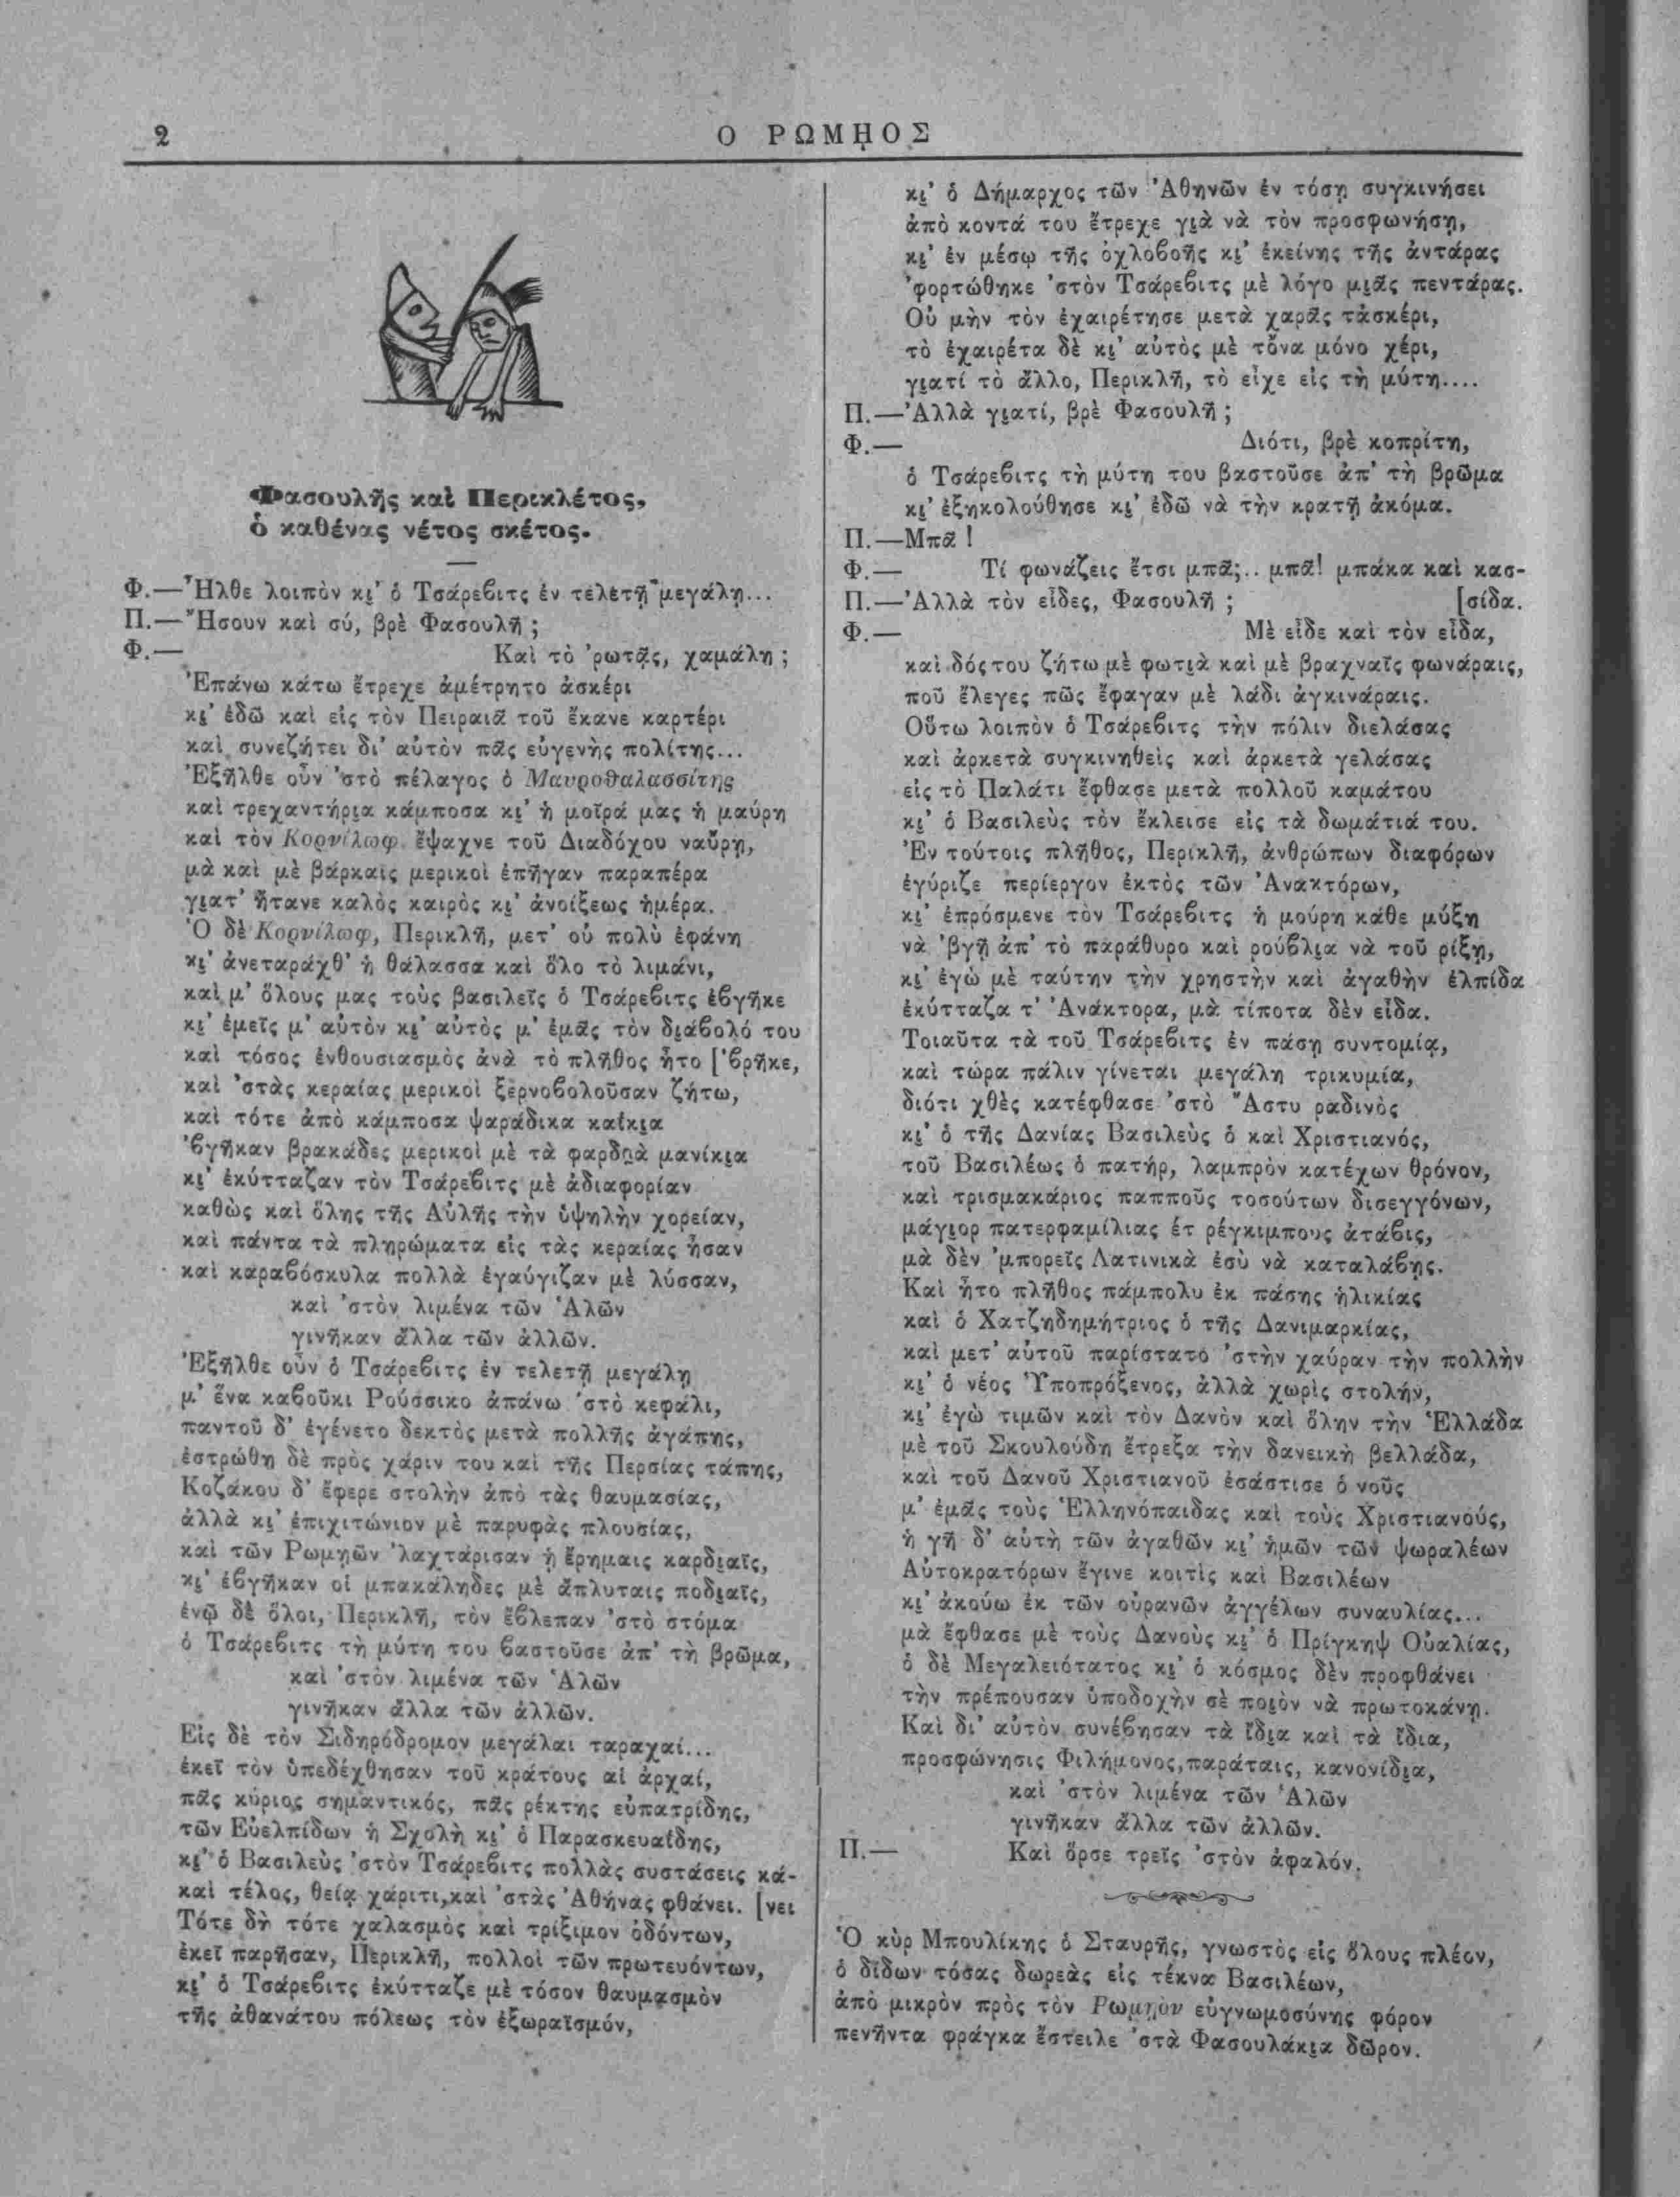 2
Ο ΡΩΜΗΟΣ
Φασουλῆς καὶ Περικλέτος,
ὁ καθένας νέτος σκέτος.
Φ.—Ἦλθε λοιπὸν κι̯’ ὁ Τσάρεβιτς ἐν τελετῇ μεγάλῃ...
Π.—Ἤσουν καὶ σύ, βρὲ Φασουλῆ ;
Φ.— Καὶ τὸ ’ρωτᾷς, χαμάλη ;
Ἐπάνω κάτω ἔτρεχε ἀμέτρητο ἀσκέρι
κι̯’ ἐδῶ καὶ εἰς τὸν Πειραιᾶ τοῦ ἔκανε καρτέρι
καὶ συνεζήτει δι’ αὐτὸν πᾶς εὐγενὴς πολίτης...
Ἐξῆλθε οὖν ’στὸ πέλαγος ὁ Μαυροθαλασσίτης
καὶ τρεχαντήρι̯α κάμποσα κι̯’ ἡ μοῖρά μας ἡ μαύρη
καὶ τὸν Κορνίλωφ ἔψαχνε τοῦ Διαδόχου ναὔρῃ,
μὰ καὶ μὲ βάρκαις μερικοὶ ἐπῆγαν παραπέρα
γι̯ατ’ ἤτανε καλὸς καιρὸς κι̯’ ἀνοίξεως ἡμέρα.
Ὁ δὲ Κορνίλωφ, Περικλῆ, μετ’ οὐ πολὺ ἐφάνη
κι̯’ ἀνεταράχθ’ ἡ θάλασσα καὶ ὅλο τὸ λιμάνι,
καὶ μ’ ὅλους μας τοὺς βασιλεῖς ὁ Τσάρεβιτς ἐβγῆκε
κι̯’ ἐμεῖς μ’ αὐτὸν κι̯’ αὐτὸς μ’ ἐμᾶς τὸν δι̯άβολό του
καὶ τόσος ἐνθουσιασμὸς ἀνὰ τὸ πλῆθος ἦτο [’βρῆκε,
καὶ ’στὰς κεραίας μερικοὶ ξερνοβολοῦσαν ζήτω,
καὶ τότε ἀπὸ κάμποσα ψαράδικα καΐκι̯α
’βγῆκαν βρακάδες μερικοὶ μὲ τὰ φαρδηὰ μανίκι̯α
κι̯’ ἐκύτταζαν τὸν Τσάρεβιτς μὲ ἀδιαφορίαν
καθὼς καὶ ὅλης τῆς Αὐλῆς τὴν ὑψηλὴν χορείαν,
καὶ πάντα τὰ πληρώματα εἰς τὰς κεραίας ἦσαν
καὶ καραβόσκυλα πολλὰ ἐγαύγιζαν μὲ λύσσαν,
καὶ ’στὸν λιμένα τῶν Ἁλῶν
γινῆκαν ἄλλα τῶν ἀλλῶν.
Ἐξῆλθε οὖν ὁ Τσάρεβιτς ἐν τελετῇ μεγάλῃ
μ’ ἕνα καβοῦκι Ρούσσικο ἀπάνω ’στὸ κεφάλι,
παντοῦ δ’ ἐγένετο δεκτὸς μετὰ πολλῆς ἀγάπης,
ἐστρώθη δὲ πρὸς χάριν του καὶ τῆς Περσίας τάπης,
Κοζάκου δ’ ἔφερε στολὴν ἀπὸ τὰς θαυμασίας,
ἀλλὰ κι̯’ ἐπιχιτώνιον μὲ παρυφὰς πλουσίας,
καὶ τῶν Ρωμῃῶν ’λαχτάρισαν ᾑ ἔρημαις καρδι̯αῖς,
κι̯’ ἐβγῆκαν οἱ μπακάληδες μὲ ἄπλυταις ποδι̯αῖς,
ἐνῷ δὲ ὅλοι, Περικλῆ, τὸν ἔβλεπαν ’στὸ στόμα
ὁ Τσάρεβιτς τὴ μύτη του βαστοῦσε ἀπ’ τὴ βρῶμα,
καὶ ’στὸν λιμένα τῶν Ἁλῶν
γινῆκαν ἄλλα τῶν ἀλλῶν.
Εἰς δὲ τὸν Σιδηρόδρομον μεγάλαι ταραχαί...
ἐκεῖ τὸν ὑπεδέχθησαν τοῦ κράτους αἱ ἀρχαί,
πᾶς κύριος σημαντικός, πᾶς ρέκτης εὐπατρίδης,
τῶν Εὐελπίδων ἡ Σχολὴ κι̯’ ὁ Παρασκευαΐδης,
κι̯’ ὁ Βασιλεὺς ’στὸν Τσάρεβιτς πολλὰς συστάσεις κά-
καὶ τέλος, θείᾳ χάριτι, καὶ ’στὰς Ἀθήνας φθάνει. [νει
Τότε δὴ τότε χαλασμὸς καὶ τρίξιμον ὀδόντων,
ἐκεῖ παρῆσαν, Περικλῆ, πολλοὶ τῶν πρωτευόντων,
κι̯’ ὁ Τσάρεβιτς ἐκύτταζε μὲ τόσον θαυμασμὸν
τῆς ἀθανάτου πόλεως τὸν ἐξωραϊσμόν,
κι̯’ ὁ Δήμαρχος τῶν Ἀθηνῶν ἐν τόσῃ συγκινήσει
ἀπὸ κοντά του ἔτρεχε γι̯ὰ νὰ τὸν προσφωνήσῃ,
κι̯’ ἐν μέσῳ τῆς ὀχλοβοῆς κι̯’ ἐκείνης τῆς ἀντάρας
’φορτώθηκε ’στὸν Τσάρεβιτς μὲ λόγο μι̯ᾶς πεντάρας.
Οὐ μὴν τὸν ἐχαιρέτησε μετὰ χαρᾶς τἀσκέρι,
τὸ ἐχαιρέτα δὲ κι̯’ αὐτὸς μὲ τὄνα μόνο χέρι,
γι̯ατί τὸ ἄλλο, Περικλῆ, τὸ εἶχε εἰς τὴ μύτη....
Π.—Ἀλλὰ γι̯ατί, βρὲ Φασουλῆ ;
Φ.— Διότι, βρὲ κοπρίτη,
ὁ Τσάρεβιτς τὴ μύτη του βαστοῦσε ἀπ’ τὴ βρῶμα
κι̯’ ἐξηκολούθησε κι̯’ ἐδῶ νὰ τὴν κρατῇ ἀκόμα.
Π.—Μπᾶ !
Φ.— Τί φωνάζεις ἔτσι μπᾶ;.. μπᾶ! μπάκα καὶ κασ-
Π.—Ἀλλὰ τὸν εἶδες, Φασουλῆ ; [σίδα.
Φ.— Μὲ εἶδε καὶ τὸν εἶδα,
καὶ δός του ζήτω μὲ φωτι̯ὰ καὶ μὲ βραχναῖς φωνάραις,
ποῦ ἔλεγες πῶς ἔφαγαν μὲ λάδι ἀγκινάραις.
Οὕτω λοιπὸν ὁ Τσάρεβιτς τὴν πόλιν διελάσας
καὶ ἀρκετὰ συγκινηθεὶς καὶ ἀρκετὰ γελάσας
εἰς τὸ Παλάτι ἔφθασε μετὰ πολλοῦ καμάτου
κι̯’ ὁ Βασιλεὺς τὸν ἔκλεισε εἰς τὰ δωμάτιά του.
Ἐν τούτοις πλῆθος, Περικλῆ, ἀνθρώπων διαφόρων
ἐγύριζε περίεργον ἐκτὸς τῶν Ἀνακτόρων,
κι̯’ ἐπρόσμενε τὸν Τσάρεβιτς ἡ μούρη κάθε μύξη
νὰ ’βγῇ ἀπ’ τὸ παράθυρο καὶ ρούβλι̯α νὰ τοῦ ρίξῃ,
κι̯’ ἐγὼ μὲ ταύτην τὴν χρηστὴν καὶ ἀγαθὴν ἐλπίδα
ἐκύτταζα τ’ Ἀνάκτορα, μὰ τίποτα δὲν εἶδα.
Τοιαῦτα τὰ τοῦ Τσάρεβιτς ἐν πάσῃ συντομίᾳ,
καὶ τώρα πάλιν γίνεται μεγάλη τρικυμία,
διότι χθὲς κατέφθασε ’στὸ Ἄστυ ραδινὸς
κι̯’ ὁ τῆς Δανίας Βασιλεὺς ὁ καὶ Χριστιανός,
τοῦ Βασιλέως ὁ πατήρ, λαμπρὸν κατέχων θρόνον,
καὶ τρισμακάριος παπποῦς τοσούτων δισεγγόνων,
μάγι̯ορ πατερφαμίλιας ἐτ ρέγκιμπους ἀτάβις,
μὰ δὲν ’μπορεῖς Λατινικὰ ἐσὺ νὰ καταλάβῃς.
Καὶ ἦτο πλῆθος πάμπολυ ἐκ πάσης ἡλικίας
καὶ ὁ Χατζηδημήτριος ὁ τῆς Δανιμαρκίας,
καὶ μετ’ αὐτοῦ παρίστατο ’στὴν χαύραν τὴν πολλὴν
κι̯’ ὁ νέος Ὑποπρόξενος, ἀλλὰ χωρὶς στολήν,
κι̯’ ἐγὼ τιμῶν καὶ τὸν Δανὸν καὶ ὅλην τὴν Ἑλλάδα
μὲ τοῦ Σκουλούδη ἔτρεξα τὴν δανεικὴ βελλάδα,
καὶ τοῦ Δανοῦ Χριστιανοῦ ἐσάστισε ὁ νοῦς
μ’ ἐμᾶς τοὺς Ἑλληνόπαιδας καὶ τοὺς Χριστιανούς,
ἡ γῆ δ’ αὐτὴ τῶν ἀγαθῶν κι̯’ ἡμῶν τῶν ψωραλέων
Αὐτοκρατόρων ἔγινε κοιτὶς καὶ Βασιλέων
κι̯’ ἀκούω ἐκ τῶν οὐρανῶν ἀγγέλων συναυλίας...
μὰ ἔφθασε μὲ τοὺς Δανοὺς κι̯’ ὁ Πρίγκηψ Οὐαλίας,
ὁ δὲ Μεγαλειότατος κι̯’ ὁ κόσμος δὲν προφθάνει
τὴν πρέπουσαν ὑποδοχὴν σὲ ποι̯ὸν νὰ πρωτοκάνῃ.
Καὶ δι’ αὐτὸν συνέβησαν τὰ ἴδι̯α καὶ τὰ ἴδια,
προσφώνησις Φιλήμονος, παράταις, κανονίδι̯α,
καὶ ’στὸν λιμένα τῶν Ἁλῶν
γινῆκαν ἄλλα τῶν ἀλλῶν.
Π.— Καὶ ὄρσε τρεῖς ’στὸν ἀφαλόν.
Ὁ κὺρ Μπουλίκης ὁ Σταυρῆς, γνωστὸς εἰς ὅλους πλέον,
ὁ δίδων τόσας δωρεὰς εἰς τέκνα Βασιλέων,
ἀπὸ μικρὸν πρὸς τὸν Ρωμῃὸν εὐγνωμοσύνης φόρον
πενῆντα φράγκα ἔστειλε ’στὰ Φασουλάκι̯α δῶρον.